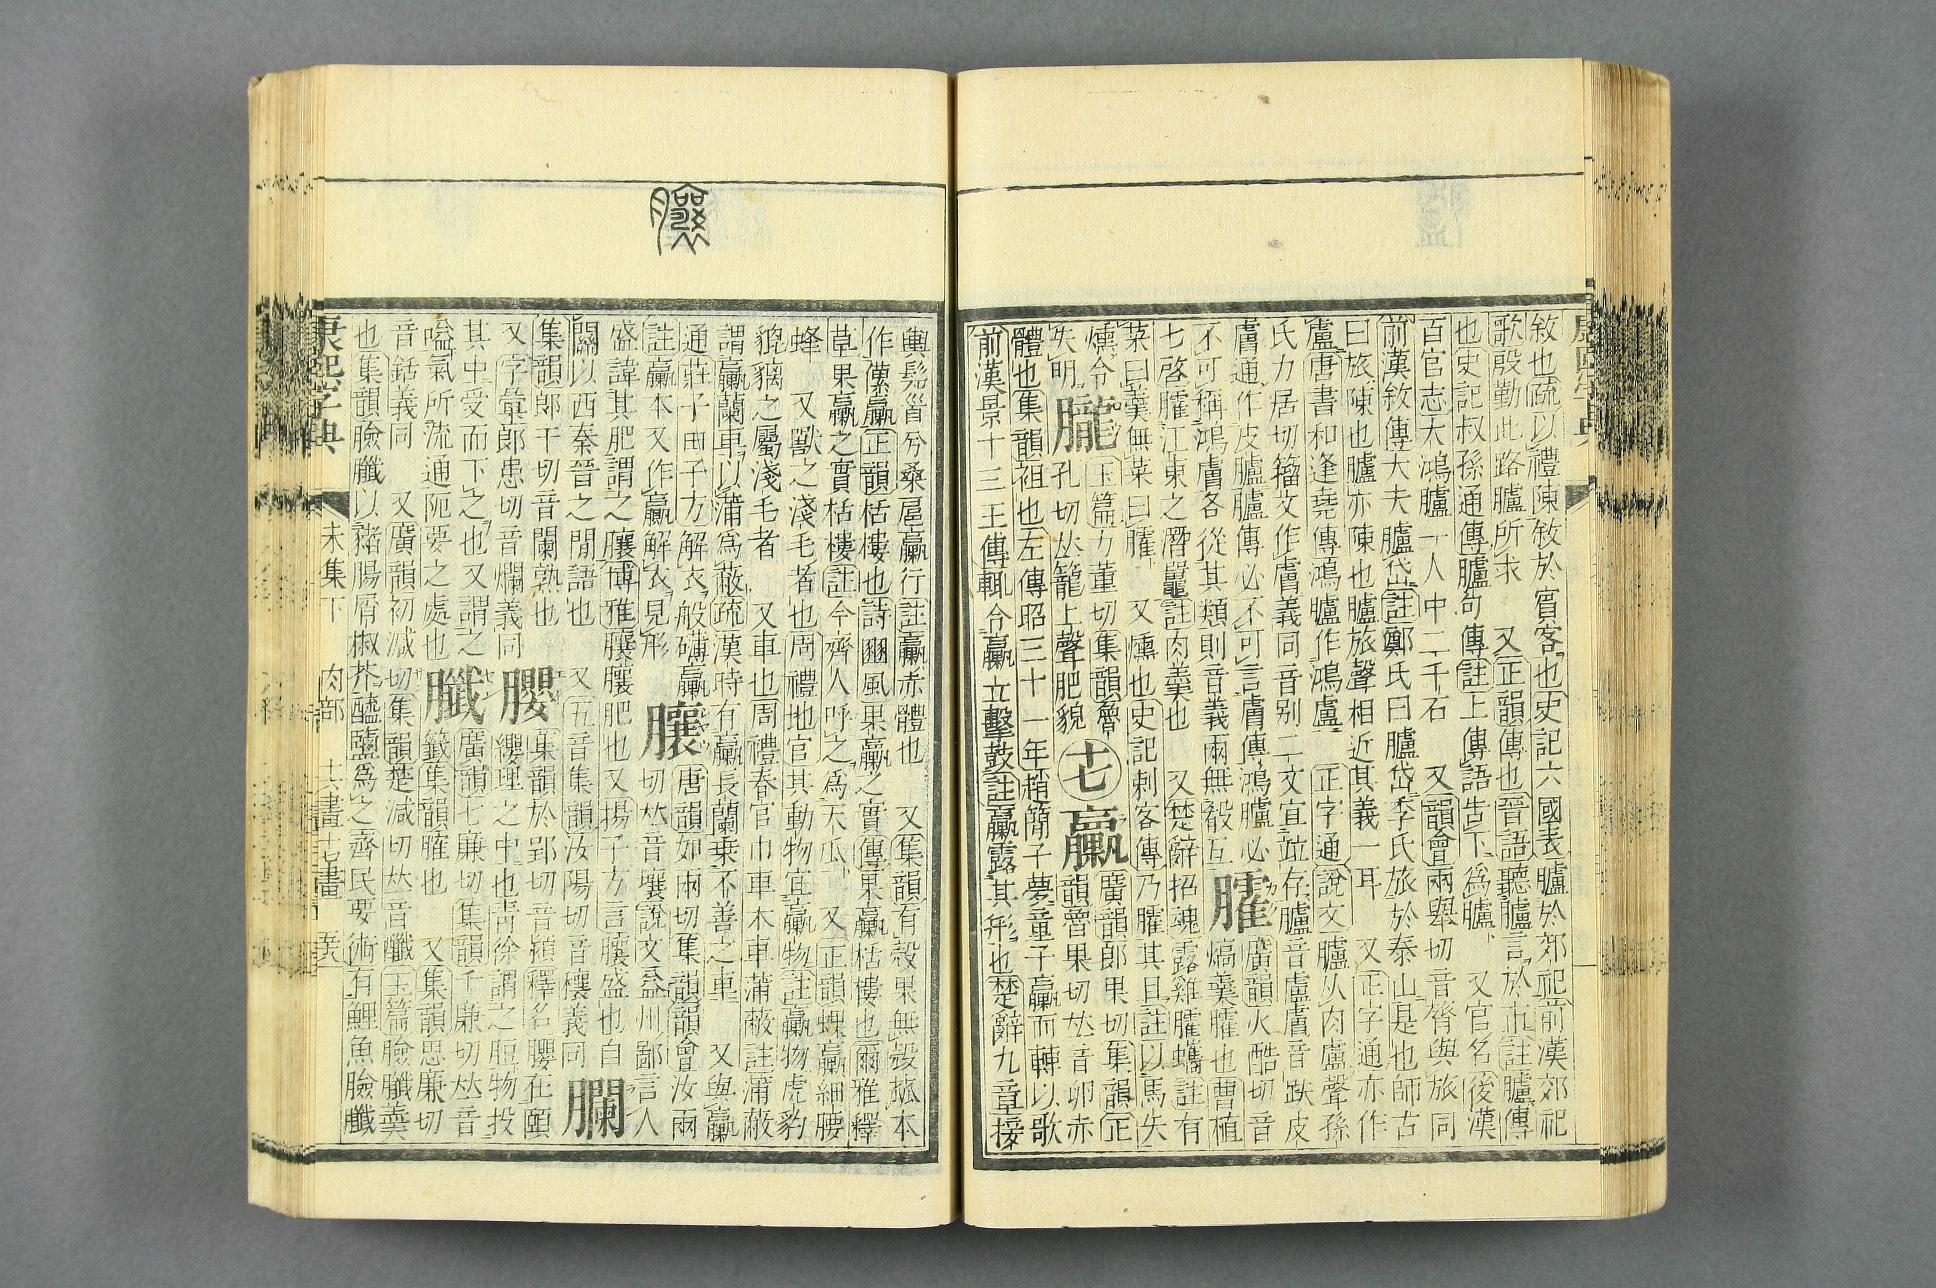 敘也疏以禮陳敘於賓客也史記六國表臚於郊祀前漢郊祀
歌殷勤此路臚所求 又正韻傳也晉語聽臚言於市註臚傳
也史記叔孫通傳臚句傳註上傳語告下爲臚 又官名後漢
百官志大鴻臚一人中二千石 又韻會兩舉切音膂與旅同
前漢敘傳大夫臚岱註鄭氏曰臚岱季氏旅於泰山是也師古
曰旅陳也臚亦陳也臚旅聲相近其義一耳 又正字通亦作
盧唐書和逢堯傳鴻臚作鴻盧 正字通說文臚从肉盧聲孫
氏力居切籀文作膚義同音别二文宜竝存臚音盧膚音趺皮
膚通作皮臚臚傳必不可言膚傳鴻臚必
不可稱鴻膚各從其類則音義兩無殽互
臛
廣韻火酷切音
熇羹臛也曹植
七啓臛江東之潛鼉註肉羹也 又楚辭招魂露雞臛蠵註有
菜曰羹無菜曰臛 又爊也史記刺客傳乃臛其目註以馬矢
爊令
失明
朧
玉篇力董切集韻魯
孔切𠀤籠上聲肥貌
十七
臝
廣韻郎果切集韻正
韻魯果切𠀤音卵赤
體也集韻袒也左傳昭三十一年趙簡子夢童子臝而轉以歌
前漢景十三王傳輒令臝立擊鼓註臝露其形也楚辭九章接
輿髡首兮桑扈臝行註臝赤體也 又集韻有殼果無殼蓏本
作儽臝正韻栝樓也詩豳風果臝之實傳果臝栝樓也爾雅釋
草果臝之實栝樓註今齊人呼之爲天瓜 又正韻蜾臝細腰
蜂 又獸之淺毛者也周禮地官其動物宜臝物註臝物虎豹
貔貐之屬淺毛者 又車也周禮春官巾車木車蒲蔽註蒲蔽
謂臝蘭車以蒲爲蔽疏漢時有臝長蘭乗不善之車 又與臝
通莊子田子方解衣般礴臝
註臝本又作臝解衣見形
臟
唐韻如兩切集韻韻會汝兩
切𠀤音壤說文益州鄙言人
盛諱其肥謂之臟博雅臟臟肥也又揚子方言臟盛也自
關以西秦晉之閒語也 又五音集韻汝陽切音穰義同
臟
集韻郎干切音闌熟也
又字彙郎患切音爛義同
臟
集韻於郢切音潁釋名臟在頤
纓理之中也青徐謂之脰物投
其中受而下之也又謂之
嗌氣所流通阨要之處也
臟
廣韻七廉切集韻千廉切𠀤音
籤集韻臛也 又集韻思廉切
音銛義同 又廣韻初減切集韻楚減切𠀤音臟玉篇臉臟羹
也集韻臉臟以豬腸屑椒芥醯鹽爲之齊民要術有鯉魚臉臟
康熙字典
未集下
肉部
十六畫十七畫